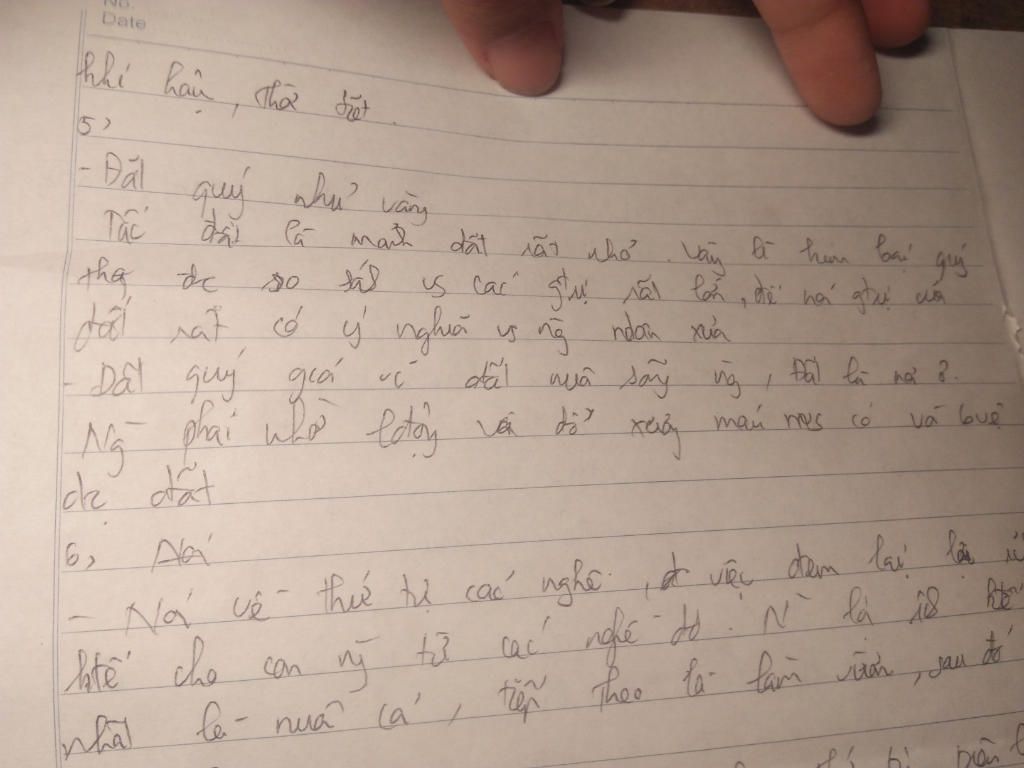 No.
Date
khí hậu, thời tiết.
5,
- Đất quý như vàng
Tấc đất là mảnh đất rất nhỏ. Vàng là kim loại quý
thg đc so sánh vs các gtrị rất lớn, để nói gtrị của
đất rất có ý nghĩa vs ng nông xưa
- Đất quý giá vì đất nuôi sống ng, đất là nơi ở.
Ng phải nhờ lđộng và đổ xương máu mới có và bvệ
đc đất
6, Nói
- Nói về thứ tự các nghề, việc đem lại lợi ích
ktế cho con ng từ các nghề đó. N là ktế
nhất là nuôi cá, tiếp theo là làm vườn, sau đó